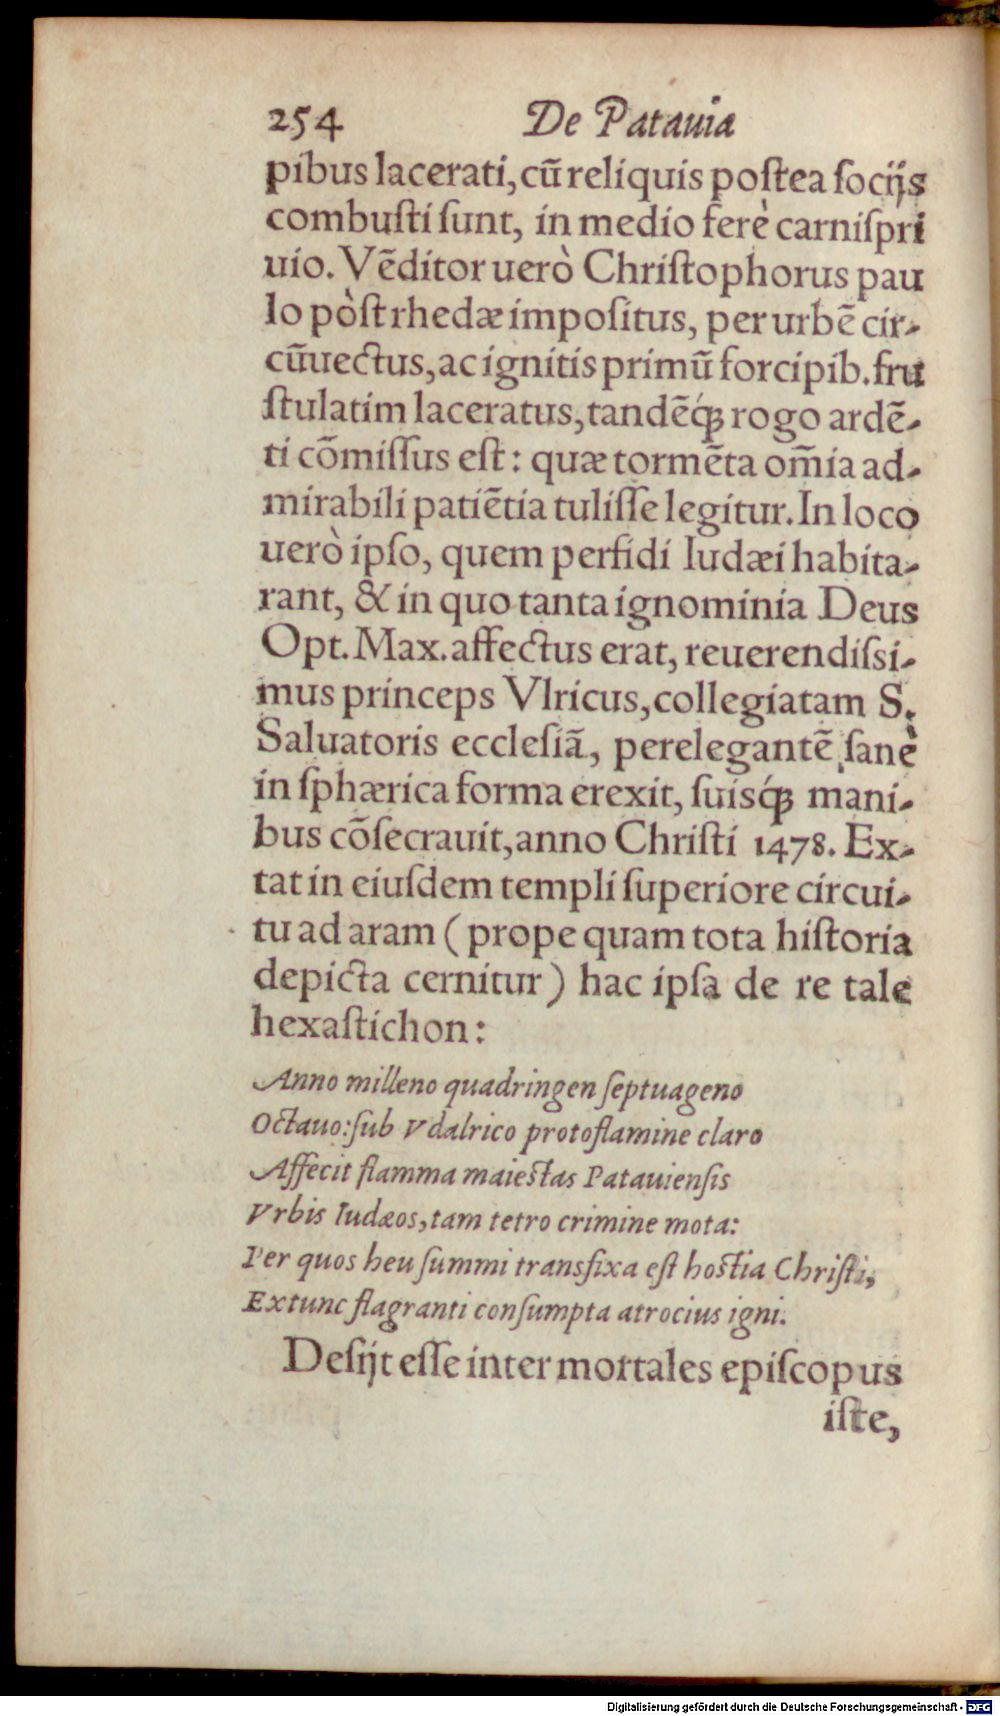 254 De Patauia
pibus lacerati, cū reliquis postea socijs
combusti sunt, in medio ferè carnispri
uio. Vēditor uerò Christophorus pau
lo pòst rhedæ impositus, per urbē cir-
cūuectus, ac ignitis primū forcipib. fru
stulatim laceratus, tandēq́; rogo ardē-
ti cōmissus est: quæ tormēta om̄ia ad-
mirabili patiētia tulisse legitur. In loco
uerò ipso, quem perfidi Iudæi habita-
rant, & in quo tanta ignominia Deus
Opt. Max. affectus erat, reuerendissi-
mus princeps Vlricus, collegiatam S.
Saluatoris ecclesiā, perelegantē sanè
in sphærica forma erexit, suisq́; mani-
bus cōsecrauit, anno Christi 1478. Ex-
tat in eiusdem templi superiore circui-
tu ad aram (prope quam tota historia
depicta cernitur) hac ipsa de re tale
hexastichon:
Anno milleno quadringen septuageno
Octauo: sub Vdalrico protoflamine claro
Affecit flamma maiestas Patauiensis
Vrbis Iudæos, tam tetro crimine mota:
Per quos heu summi transfixa est hostia Christi,
Extunc flagranti consumpta atrocius igni.
Desijt esse inter mortales episcopus
iste,
Digitalisierung gefördert durch die Deutsche Forschungsgemeinschaft - DFG